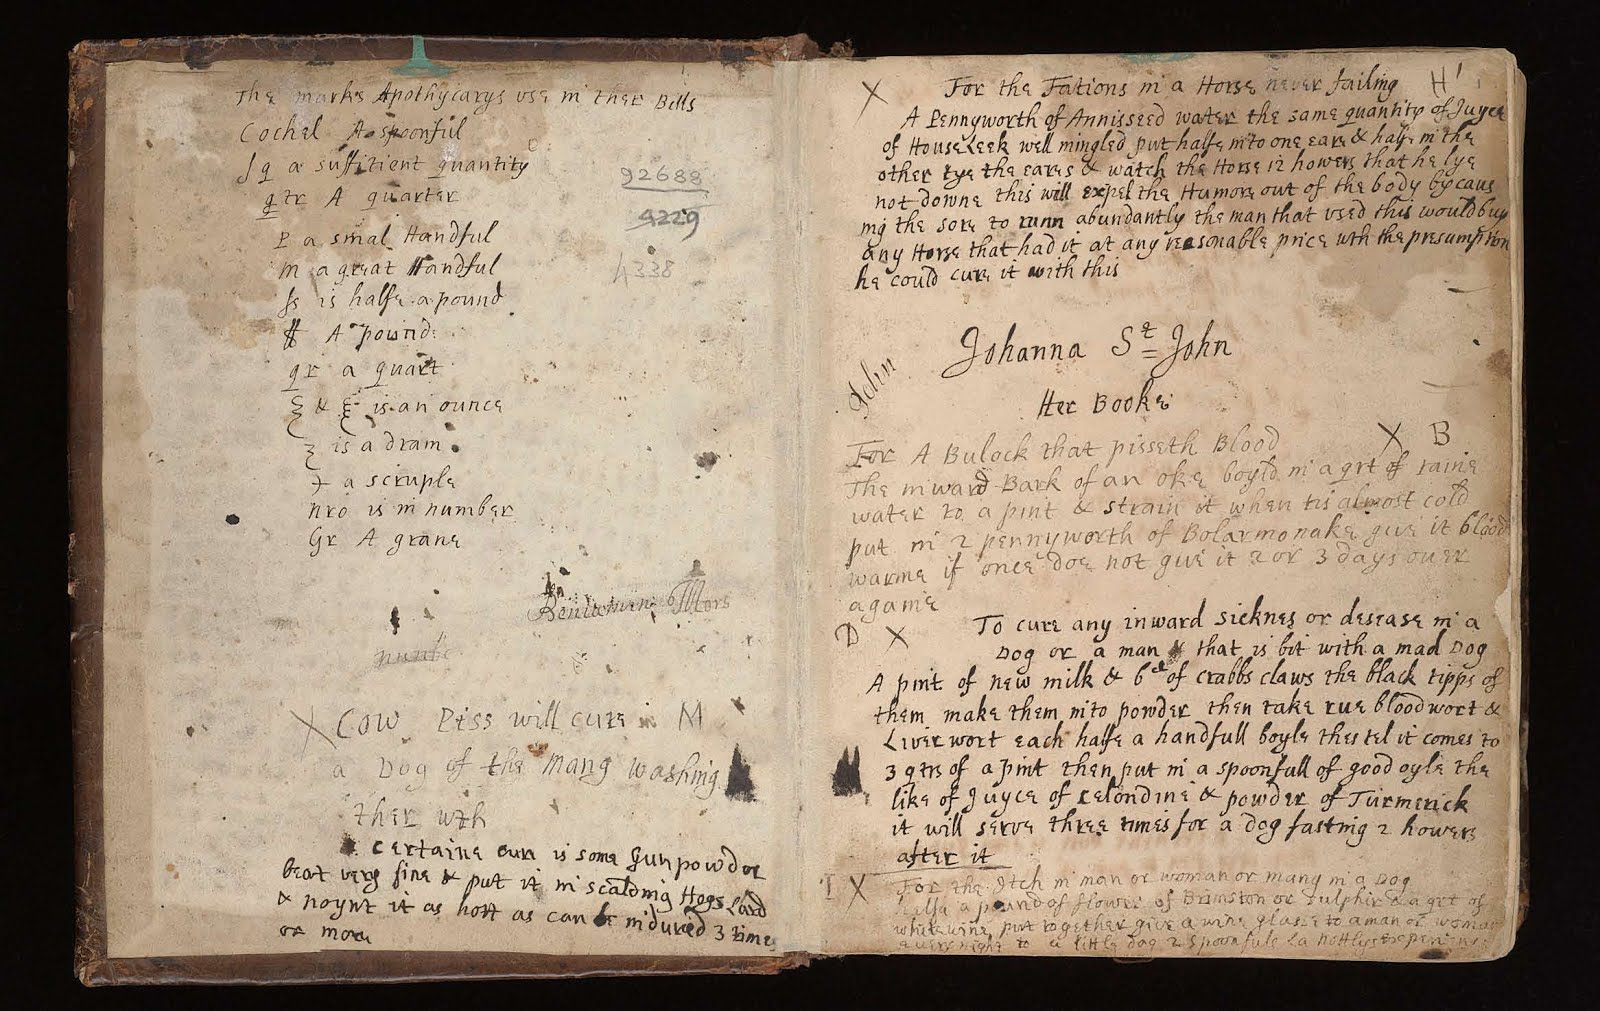 The marks Apothycarys use in ther Bills
Cochel A spoonful
Sq a suffitient quantity
qtr A quarter
P a smal Handful
M a great Handful
ſs is halfe a pound
℔ A pound
qr a quart
℥ & ℥ is an ounce
ʒ is a dram
℈ a scruple
nro is in number
Gr A grane
92688
4229
4338
X Cow Piss will cure in M
a Dog of the mang washing
ther wth
A certaine cure is some Gunpowder
beat very fine & put it in scalding Hogs Lard
& noynt it as hott as can be indured 3 times
or more
X For the Fations in a Horse never failing H
A Pennyworth of Annisseed water the same quantity of Juyce
of HouseLeek well mingled put halfe into one eare & halfe in the
other tye the eares & watch the Horse 12 howers that he lye
not downe this will expel the Humore out of the body by caus
ing the sore to runn abundantly the man that used this would buy
any Horse that had it at any reasonable price wth the presumption
he could cure it with this
Johanna St John
John
Her Booke
For A Bulock that pisseth Blood X B
The inward Bark of an oke boyld in a qrt of raine
water to a pint & strain it when tis almost cold
put in 2 pennyworth of Bolarmonake give it blood
warme if once doe not give it 2 or 3 days over
againe
D X To cure any inward sicknes or desease in a
Dog or a man that is bit with a mad Dog
A pint of new milk & 6d of crabbs claws the black tipps of
them make them into powder then take rue bloodwort &
Liverwort each halfe a handfull boyle thes tel it comes to
3 qtrs of a pint then put in a spoonfull of good oyle the
like of Juyce of celondine & powder of Turmerick
it will serve three times for a dog fasting 2 howers
after it
I X For the Itch in man or woman or mang in a Dog
halfe a pound of flower of Brimston or Sulphir & a qrt of
whitewine put together give a wine glasse to a man or woman
every night to a little dog 2 spoonfuls